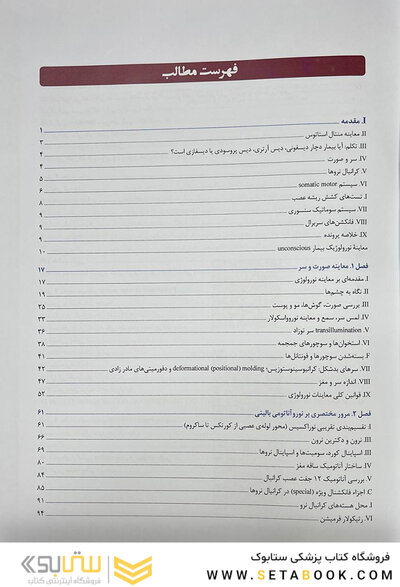 فهرست مطالب
I. مقدمه ۱
II. معاینه منتال استاتوس ۳
III. تکلم، آیا بیمار دچار دیسفونی، دیس آرتری، دیس پروسودی یا دیسفازی است؟ ۴
IV. سر و صورت ۴
V. کرانیال نروها ۵
VI. سیستم somatic motor ۶
I. تست‌های کشش ریشه عصب ۸
VII. سیستم سوماتیک سنسوری ۹
VIII. فانکشن‌های سربرال ۹
IX. خلاصه پرونده ۹
معاینهٔ نورولوژیک بیمار unconscious ۱۰
فصل ۱. معاینه صورت و سر ۱۷
I. مقدمه‌ای بر معاینه نورولوژی ۱۷
II. نگاه به چشم‌ها ۱۹
III. بررسی صورت، گوش‌ها، مو و پوست ۳۵
IV. لمس سر، سمع و معاینه نوروواسکولار ۳۳
V. transillumination سر نوزاد ۳۶
VI. استخوان‌ها و سوچورهای جمجمه ۳۸
F. بسته‌شدن سوچورها و فونتانل‌ها ۴۱
VII. سرهای بدشکل: کرانیوسینوستوزیس؛ deformational (positional) molding و دفورمیتی‌های مادر زادی ۴۲
VIII. اندازه سر و مغز ۴۷
IX. قوانین کلی معاینات نورولوژی ۵۲
فصل ۲. مرور مختصری بر نوروآناتومی بالینی ۶۱
I. تقسیم‌بندی تقریبی نوراکسیس (محور لوله‌ی عصبی از کورتکس تا ساکروم) ۶۱
II. نرون و دکترین نرون ۶۶
III. اسپاینال کورد، سومیت‌ها و اسپاینال نروها ۶۹
IV. ساختار آناتومیک ساقه مغز ۸۰
V. بررسی آناتومیک ۱۲ جفت عصب کرانیال ۸۴
C. اجزاء فانکشنال ویژه (special) در کرانیال نروها ۸۵
I. محل هسته‌های کرانیال نرو ۹۱
VI. رتیکولار فرمیشن ۹۴
فروشگاه کتاب پزشکی ستابوک
WWW.SETABOOK.COM
ستابوک
فروشگاه اینترنتی کتاب